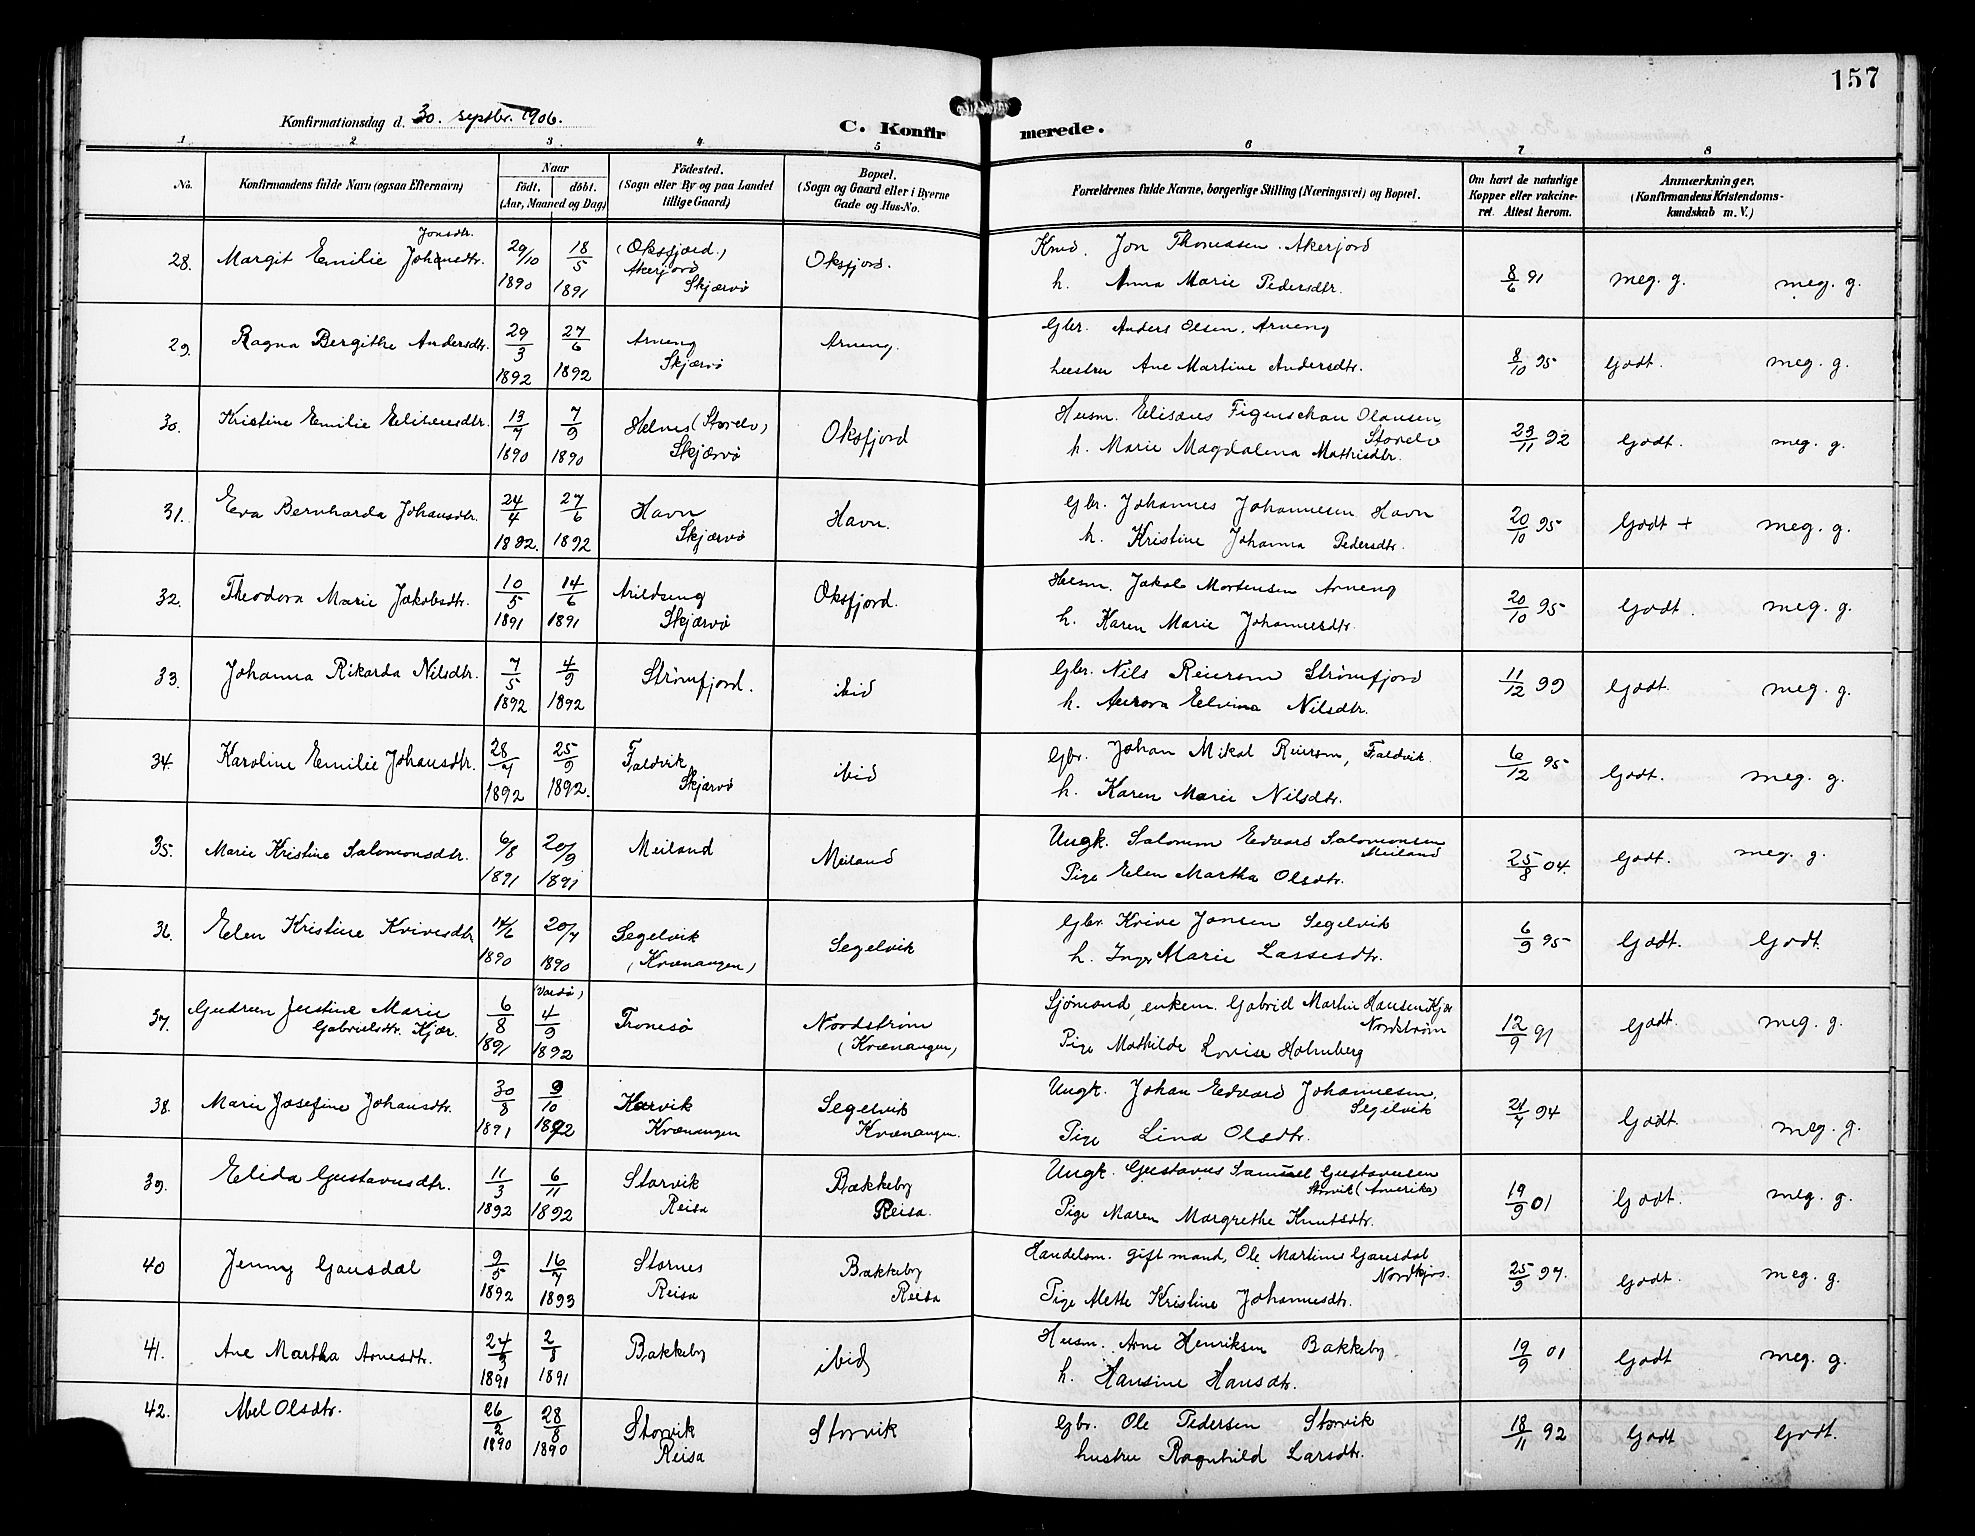 157
Konfirmationsdag d. 30. septbr. 1906.
C. Konfirmerede.
1 2 3 4 5 6 7 8
No.
Konfirmandens fulde Navn (ogsaa Efternavn)
Naar
födt. döbt.
(Aar, Maaned og Dag)
Födested.
(Sogn eller By og paa Landet
tillige Gaard)
Bopæl.
(Sogn og Gaard eller i Byerne
Gade og Hus-No.
Forældrenes fulde Navne, borgerlige Stilling (Næringsvei) og Bopæl.
Om havt de naturlige
Kopper eller vakcine-
ret. Attest herom.
Anmærkninger.
(Konfirmandens Kristendoms-
kundskab m. V.)
Jonsdtr.
28. Margit Emilie Johansdtr. 29/10 1890 18/5 1891 (Oksfjord.) Akerjord Skjærvø Oksfjord.
Kmd. Jon Thomassen. Akerjord
h. Anna Marie Pedersdtr. 8/6 91 meg. g. meg. g.
29. Ragna Bergithe Andersdtr. 29/3 1892 27/6 1892 Arneng Skjærvø Arneng.
Gbr. Anders Olsen, Arneng
hustru Ane Martine Andersdtr. 8/10 95 Godt. meg. g.
30. Kristine Emilie Eliseusdtr. 13/7 1890 7/9 1890 Helnes (Storelv) Skjærvø Oksfjord
Husm. Elisæus Figenschau Olausen
Storelv
h. Marie Magdalena Mathisdtr. 23/11 92 Godt. meg. g.
31. Eva Bernharda Johansdtr. 24/4 1892. 27/6 1892 Havn Skjærvø Havn.
Gbr. Johannes Johannesen Havn
h. Kristine Johanna Pedersdtr. 20/10 95 Godt + meg. g.
32. Theodora Marie Jakobsdtr. 10/5 1891 14/6 1891 Arildseng Skjærvø Oksfjord.
Husm. Jakob Mortensen Arneng
h. Karen Marie Johannesdtr. 20/10 95 Godt. meg. g.
33. Johanna Rikarda Nilsdtr. 7/5 1892 4/9 1892 Strømfjord. ibid
Gbr. Nils Reiersen Strømfjord
h. Aurora Elvina Nilsdtr. 11/12 99 Godt. meg. g.
34. Karoline Emilie Johansdtr. 28/7 1892 25/9 1892. Faldvik Skjærvø ibid
Gbr. Johan Mikal Reiersen, Faldvik.
h. Karen Marie Nilsdtr. 6/12 95 Godt. meg. g.
35. Marie Kristine Salomonsdtr. 6/8 1891 20/9 1891 Meiland Meiland
Ungk. Salomon Edvard Salomonsen
Meiland
Pige Elen Martha Olsdtr. 25/8 04. Godt. meg. g.
36. Elen Kristine Kvivesdtr 14/6 1890 20/7 1890 Segelvik (Kvænangen) Segelvik
Gbr. Kvive Jonsen Segelvik
h. Inger Marie Lassesdtr. 6/9 95 Godt. Godt.
37. Gudrun Justine Marie
Gabrielsdtr. Kjær. 6/8 1891 (Vardø) 4/9 1892 Tromsø Nordstrøm (Kvænangen)
Sjømand enkem. Gabriel Martin Hansen Kjær
Nordstrøm
Pige Mathilde Lovise Holmberg 12/9 91 Godt. meg. g.
38. Marie Josefine Johansdtr. 30/8 1891 9/10 1892 Karvik Kvænangen Segelvik Kvænangen.
Ungk. Johan Edvard Johannesen.
Segelvik
Pige Lina Olsdtr. 21/7 94 Godt. meg. g.
39. Elida Gustavusdtr. 11/3 1892 6/11 1892 Storvik Reisa Bakkeby Reisa.
Ungk. Gustavus Samuel Gustavusen
Storvik (Amerika)
Pige Maren Margrethe Knutsdtr. 19/9 01 Godt. meg. g.
40 Jenny Gausdal 9/5 1892 16/7 1893 Stornes Reisa Bakkeby Reisa
Handelsm. gift mand, Ole Martinus Gausdal
Nordkjos.
Pige Mette Kristine Johannesdtr. 25/9 97. Godt. meg. g.
41. Ane Martha Arnesdtr. 24/3 1891 2/8 1891 Bakkeby ibid
Husm. Arne Henriksen Bakkeby.
h. Hansine Hansdtr. 19/9 01 Godt meg. g.
42. Abel Olsdtr. 26/2 1890 28/8 1890 Storvik Reisa Storvik
Gbr. Ole Pedersen Storvik
hustru Ragnhild Larsdtr. 18/11 92 Godt Godt.